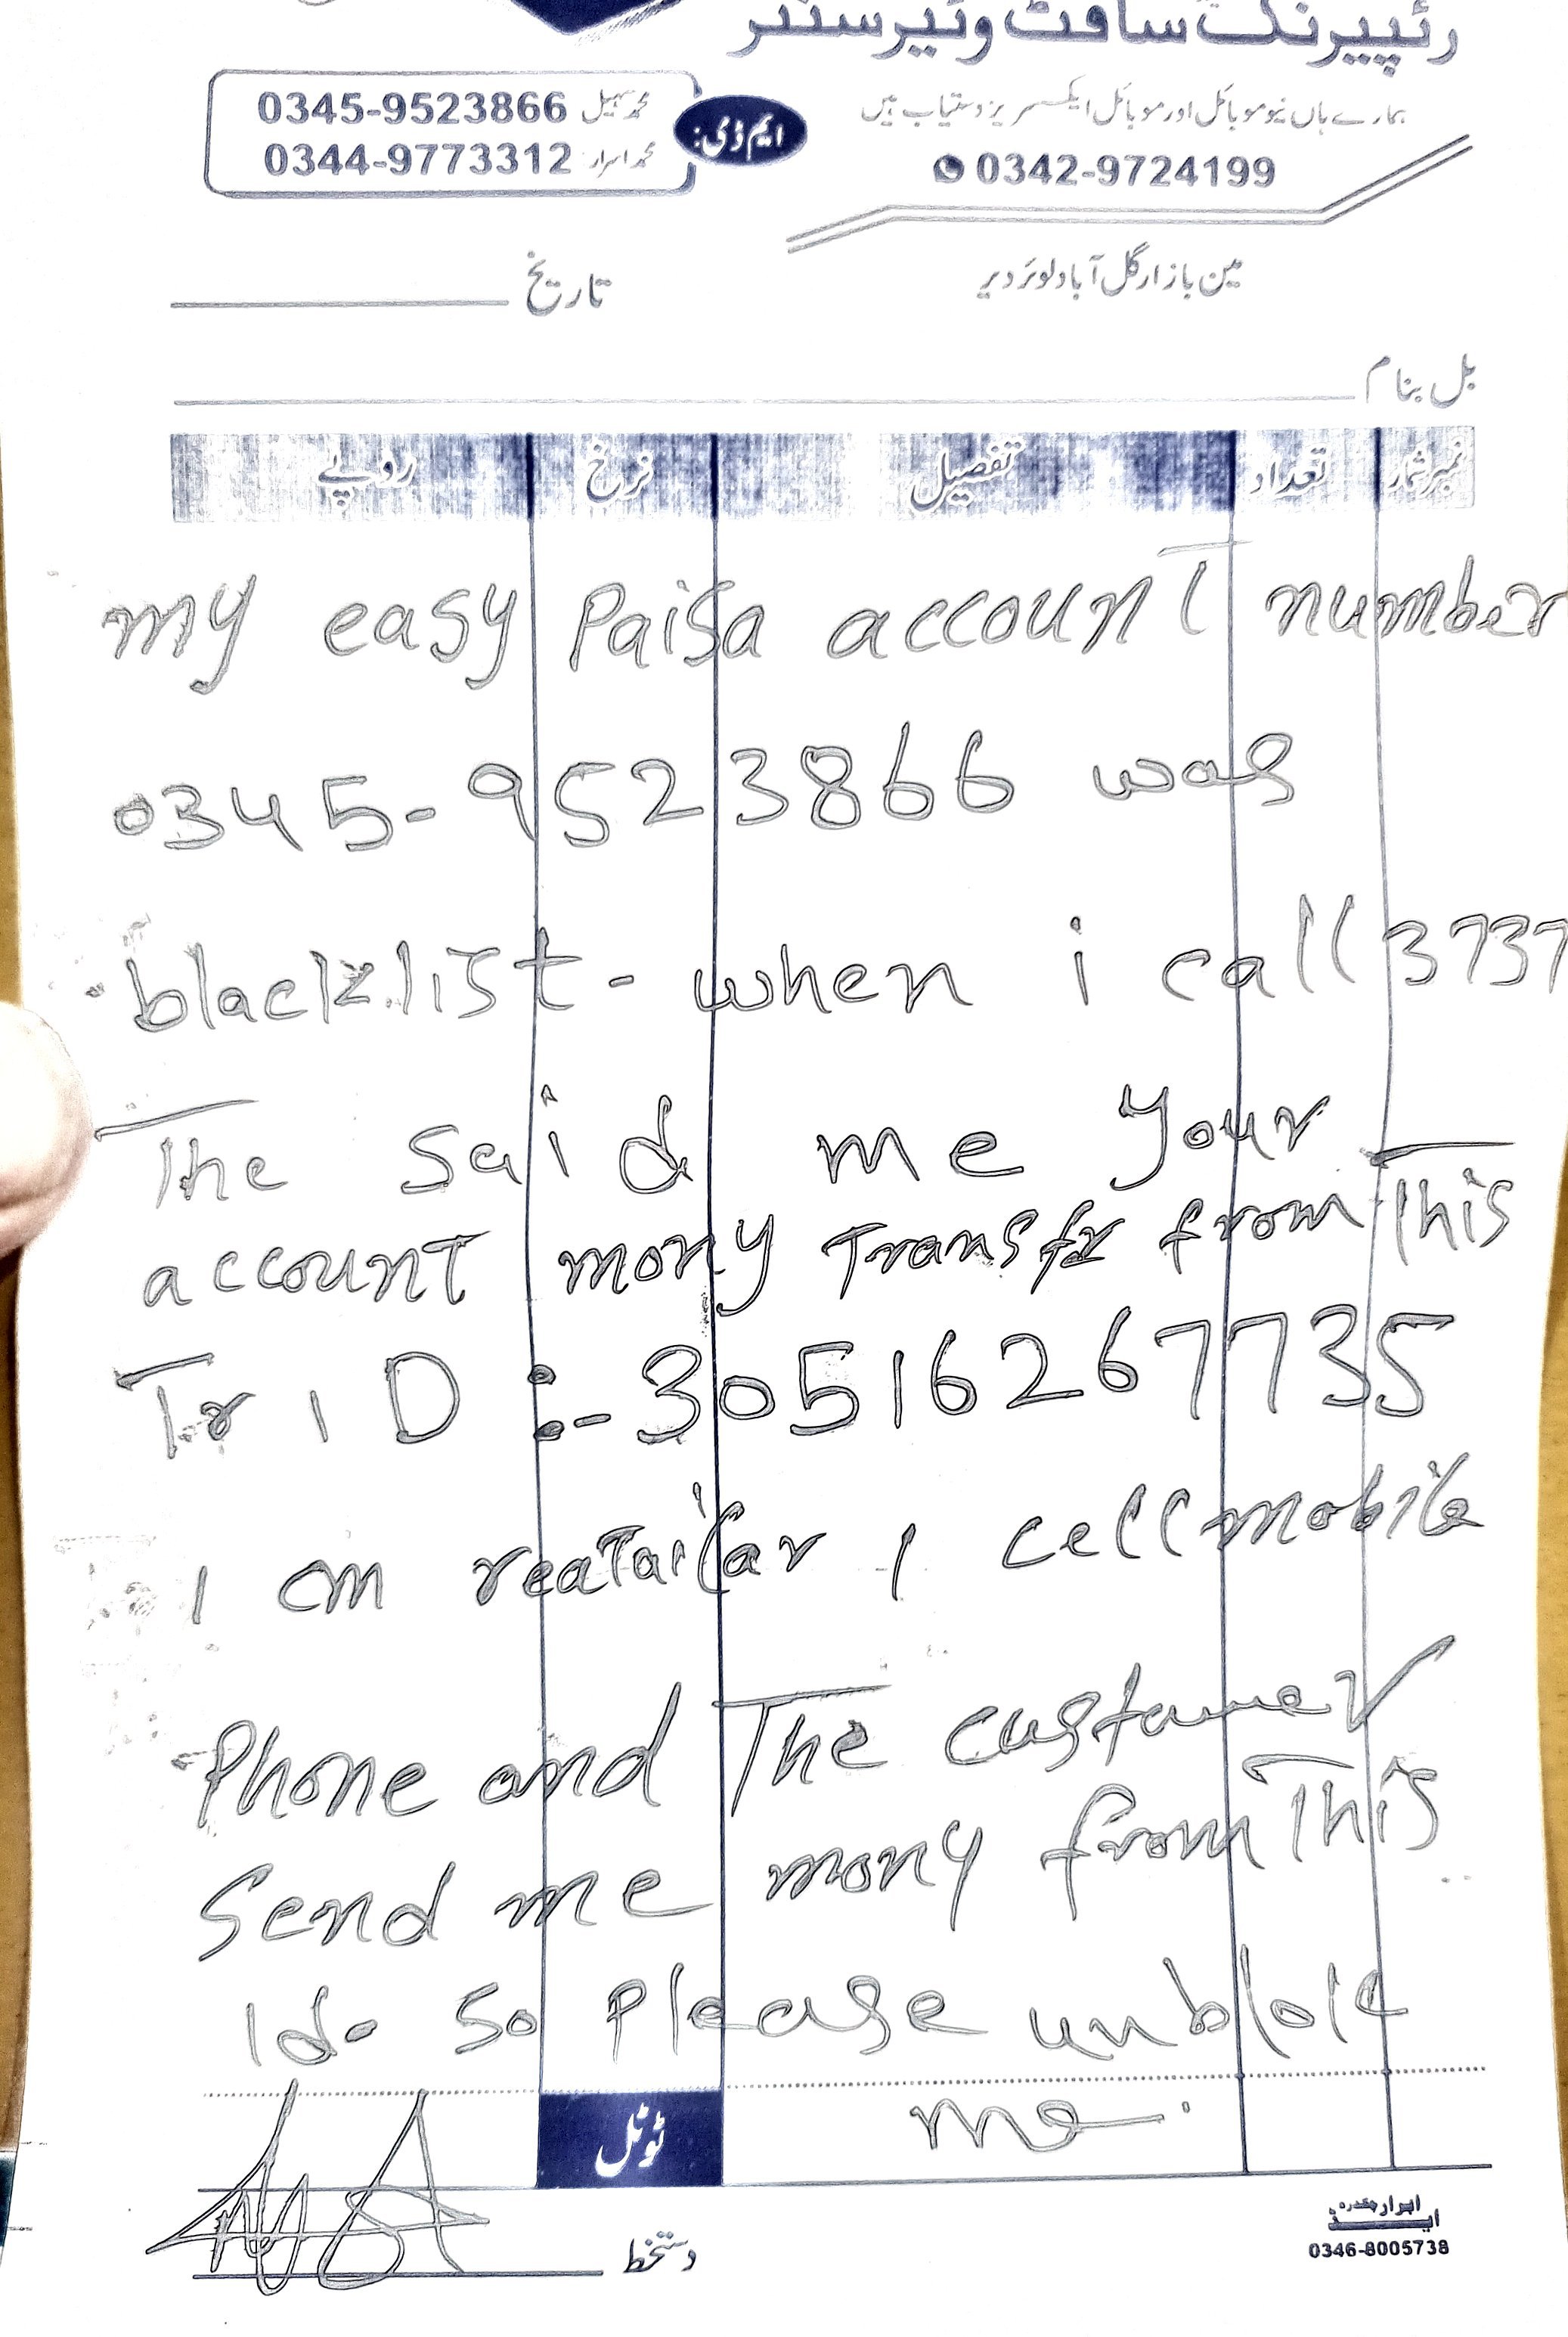 رئیپیرنگ سافٹ وئیر سنٹر
ہمارے ہاں نیو موبائل اور موبائل ایکسسریز دستیاب ہیں
0342-9724199
ایم ڈی:
محمد سہیل 0345-9523866
محمد اسرار 0344-9773312
مین بازار گل آباد لوئر دیر
تاریخ
بل بنام
نمبر شمار تعداد تفصیل نرخ روپے
my easy Paisa account number
0345-9523866 was
blacklist - when i call 3737
The said me your
account mony Transfr from This
Tr iD :- 30516267735
I am reatailar I cell mobile
Phone and The custamer
Send me mony from This
Id- So Please unblolk
me.
ٹوٹل
دستخط
0346-8005738